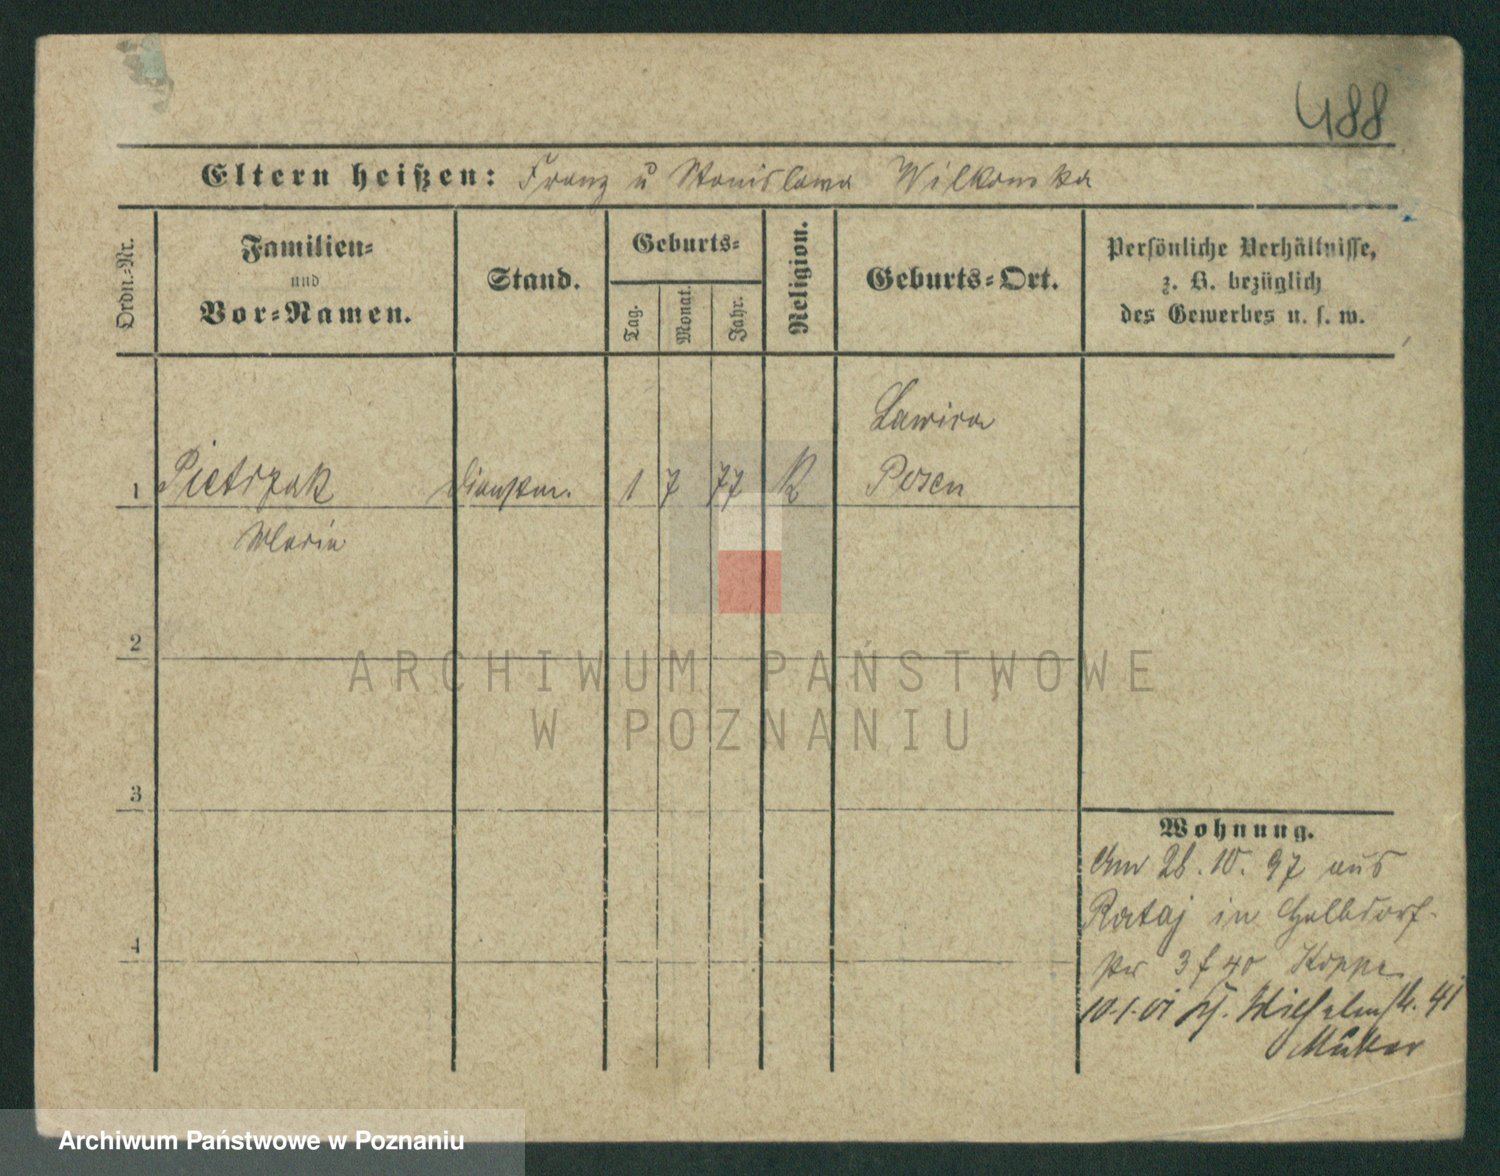 488
Eltern heißen: Franz u Stanislawa Wilkonska
Ordn.-Nr.
Familien-
und
Vor-Namen.
Stand.
Geburts-
Tag.
Monat.
Jahr.
Religion.
Geburts-Ort.
Persönliche Verhältnisse,
z. B. bezüglich
des Gewerbes u. s. w.
Lawica
1 Pietrzak 1 7 77 K Posen
Maria
2
3
4
Wohnung.
Am 28. 10. 97 aus
Rataj in Halbdorf-
str 3 f 40 Koppe
10.1.01 Wilhelmstr. 41
ARCHIWUM PAŃSTWOWE
W POZNANIU
Archiwum Państwowe w Poznaniu